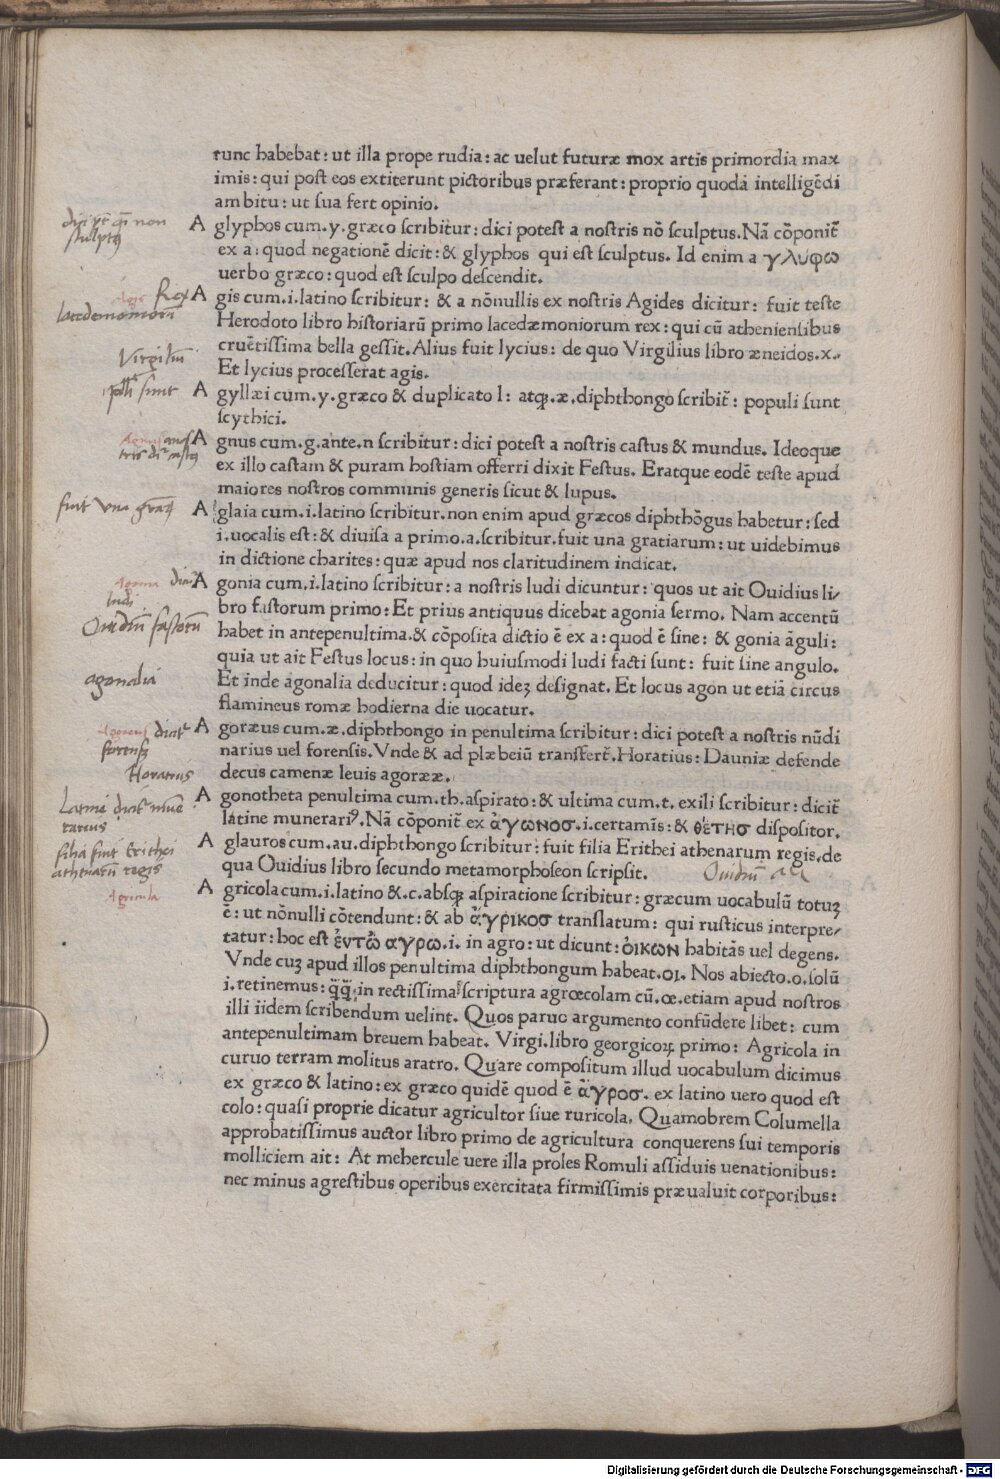 tunc habebat: ut illa prope rudia: ac uelut futuræ mox artis primordia max
imis: qui post eos extiterunt pictoribus præferant: proprio quodā intelligēdi
ambitu: ut sua fert opinio.
A glyphos cum.y.græco scribitur: dici potest a nostris nō sculptus. Nā cōponit̃
ex a: quod negationē dicit: & glyphos qui est sculptus. Id enim a γλύφω
uerbo græco: quod est sculpo descendit.
Rex A gis cum.i.latino scribitur: & a nōnullis ex nostris Agides dicitur: fuit teste
Herodoto libro historiarū primo lacedæmoniorum rex: qui cū atheniensibus
cruētissima bella gessit. Alius fuit lycius: de quo Virgilius libro æneidos.x.
Et lycius processerat agis.
A gyllæi cum.y.græco & duplicato l: atqꝫ.æ.diphthongo scribit̃: populi sunt
scythici.
A gnus cum.g.ante.n scribitur: dici potest a nostris castus & mundus. Ideoque
ex illo castam & puram hostiam offerri dixit Festus. Eratque eodē teste apud
maiores nostros communis generis sicut & lupus.
fuit una
A glaia cum.i.latino scribitur.non enim apud græcos diphthōgus habetur: sed
i.uocalis est: & diuisa a primo.a.scribitur.fuit una gratiarum: ut uidebimus
in dictione charites: quæ apud nos claritudinem indicat.
A gonia cum.i.latino scribitur: a nostris ludi dicuntur: quos ut ait Ouidius li/
ludi
bro fastorum primo: Et prius antiquus dicebat agonia sermo. Nam accentū
habet in antepenultima.& cōposita dictio ē ex a: quod ē sine: & gonia āguli:
quia ut ait Festus locus: in quo huiusmodi ludi facti sunt: fuit sine angulo.
agonalia
Et inde agonalia deducitur: quod ideꝫ designat. Et locus agon ut etiā circus
flamineus romæ hodierna die uocatur.
A goræus cum.æ.diphthongo in penultima scribitur: dici potest a nostris nūdi
narius uel forensis. Vnde & ad plæbeiū transfert̃. Horatius: Dauniæ defende
Horatius
decus camenæ leuis agorææ.
A gonotheta penultima cum.th.aspirato: & ultima cum.t. exili scribitur: dicit̃
latine munerariꝰ. Nā cōponit̃ ex ἀγωνοσ.i.certamīs: & θέτησ dispositor.
filia fuit Erithei
A glauros cum.au.diphthongo scribitur: fuit filia Erithei athenarum regis.de
qua Ouidius libro secundo metamorphoseon scripsit.
Agricula
A gricola cum.i.latino &.c.absqꝫ aspiratione scribitur: græcum uocabulū totuꝫ
ē: ut nōnulli cōtendunt: & ab ἄγρικοσ translatum: qui rusticus interpre/
tatur: hoc est ἐντῶ αγρω.i. in agro: ut dicunt: ὀικων habitās uel degens.
Vnde cuꝫ apud illos penultima diphthongum habeat.οι. Nos abiecto.o.solū
i.retinemus: q̄q̄ in rectissima scriptura agrœcolam cū.œ.etiam apud nostros
illi iidem scribendum uelint. Quos paruo argumento confūdere libet: cum
antepenultimam breuem habeat. Virgi.libro georgicoꝝ primo: Agricola in
curuo terram molitus aratro. Quare compositum illud uocabulum dicimus
ex græco & latino: ex græco quidē quod ē ἄγροσ. ex latino uero quod est
colo: quasi proprie dicatur agricultor siue ruricola. Quamobrem Columella
approbatissimus auctor libro primo de agricultura conquerens sui temporis
molliciem ait: At mehercule uere illa proles Romuli assiduis uenationibus:
nec minus agrestibus operibus exercitata firmissimis præualuit corporibus:
Digitalisierung gefördert durch die Deutsche Forschungsgemeinschaft - DFG